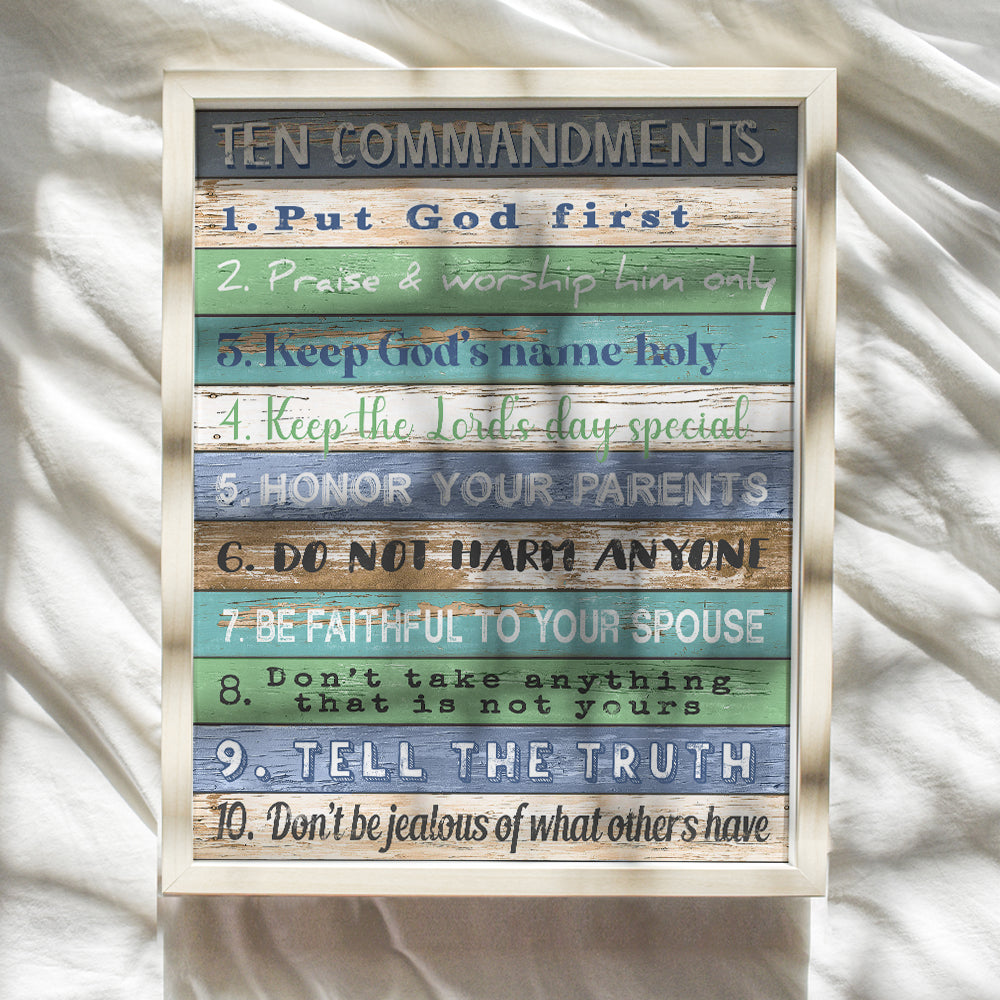 TEN COMMANDMENTS
1. Put God first
2. Praise & worship him only
3. Keep God's name holy
4. Keep the Lord's day special
5. HONOR YOUR PARENTS
6. DO NOT HARM ANYONE
7. BE FAITHFUL TO YOUR SPOUSE
8. Don't take anything
that is not yours
9. TELL THE TRUTH
10. Don't be jealous of what others have